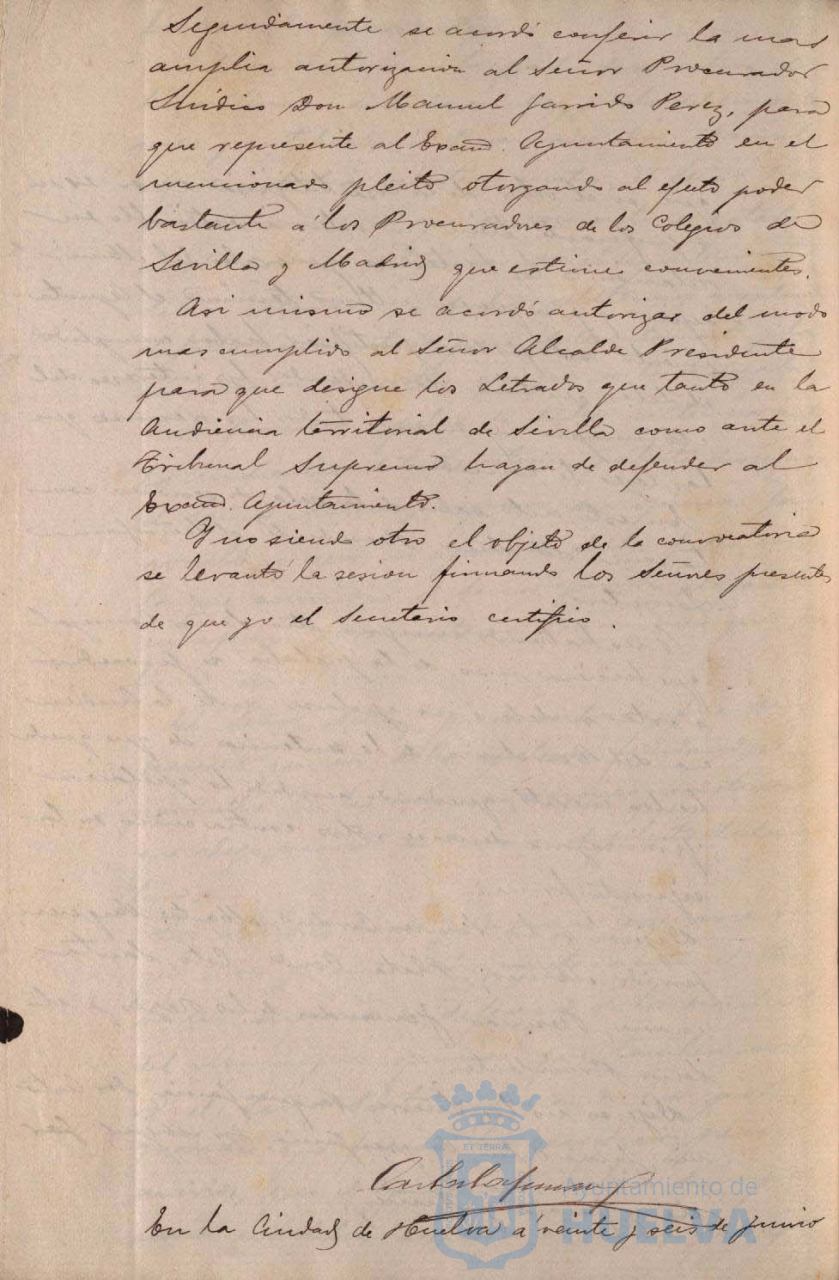 Seguidamente se acordó conferir la mas
amplia autorizacion al Señor Procurador
Sindico Don Manuel Garrido Perez, para
que represente al Excmo. Ayuntamiento en el
mencionado pleito otorgando al efecto poder
bastante á los Procuradores de los Colegios de
Sevilla y Madrid que estime convenientes.
Asi mismo se acordó autorizar del modo
mas cumplido al Señor Alcalde Presidente
para que designe los Letrados que tanto en la
Audiencia territorial de Sevilla como ante el
Tribunal Supremo hayan de defender al
Excmo. Ayuntamiento.
Y no siendo otro el objeto de la convocatoria
se levantó la sesion firmando los Señores presentes
de que yo el Secretario certifico.
Ayuntamiento de
HUELVA
En la Ciudad de Huelva á veinte y seis de junio